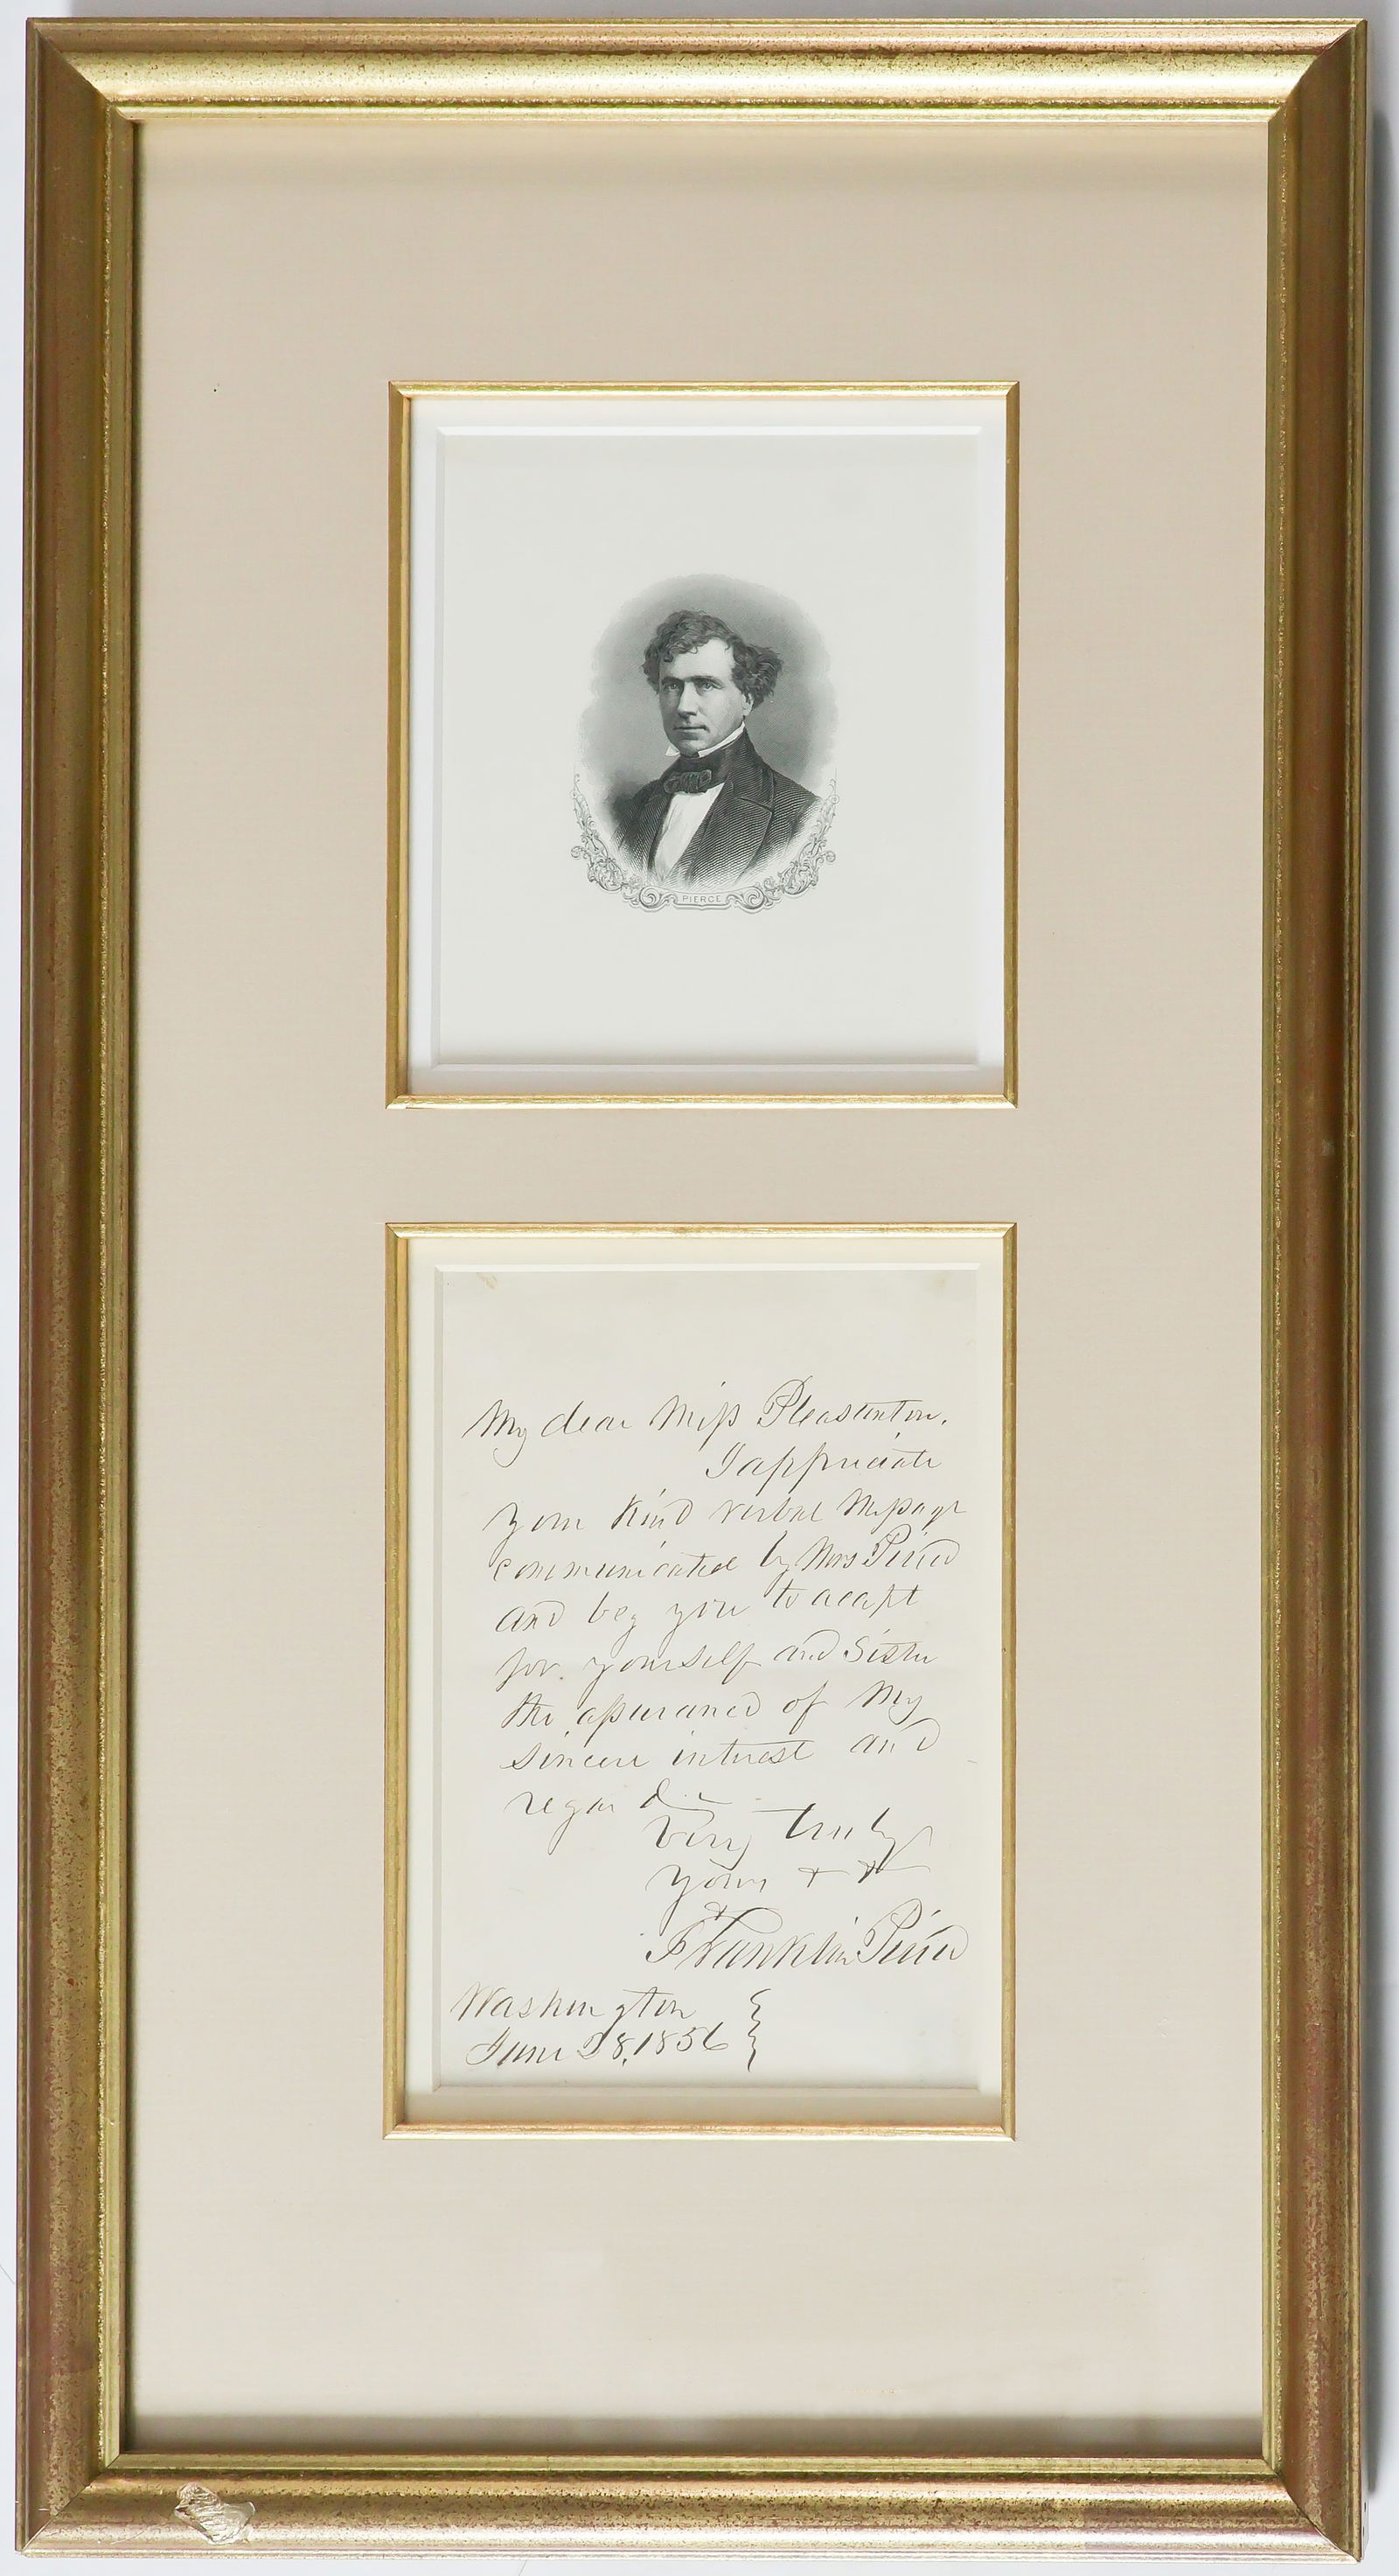 PIERCE
My dear Miss Pleasanton,
I appreciate
your kind verbal message
communicated by Mrs Pierce
and beg you to accept
for yourself and Sister
the assurance of my
sincere interest and
regard.
Very truly
yours
Franklin Pierce
Washington
June 28, 1856